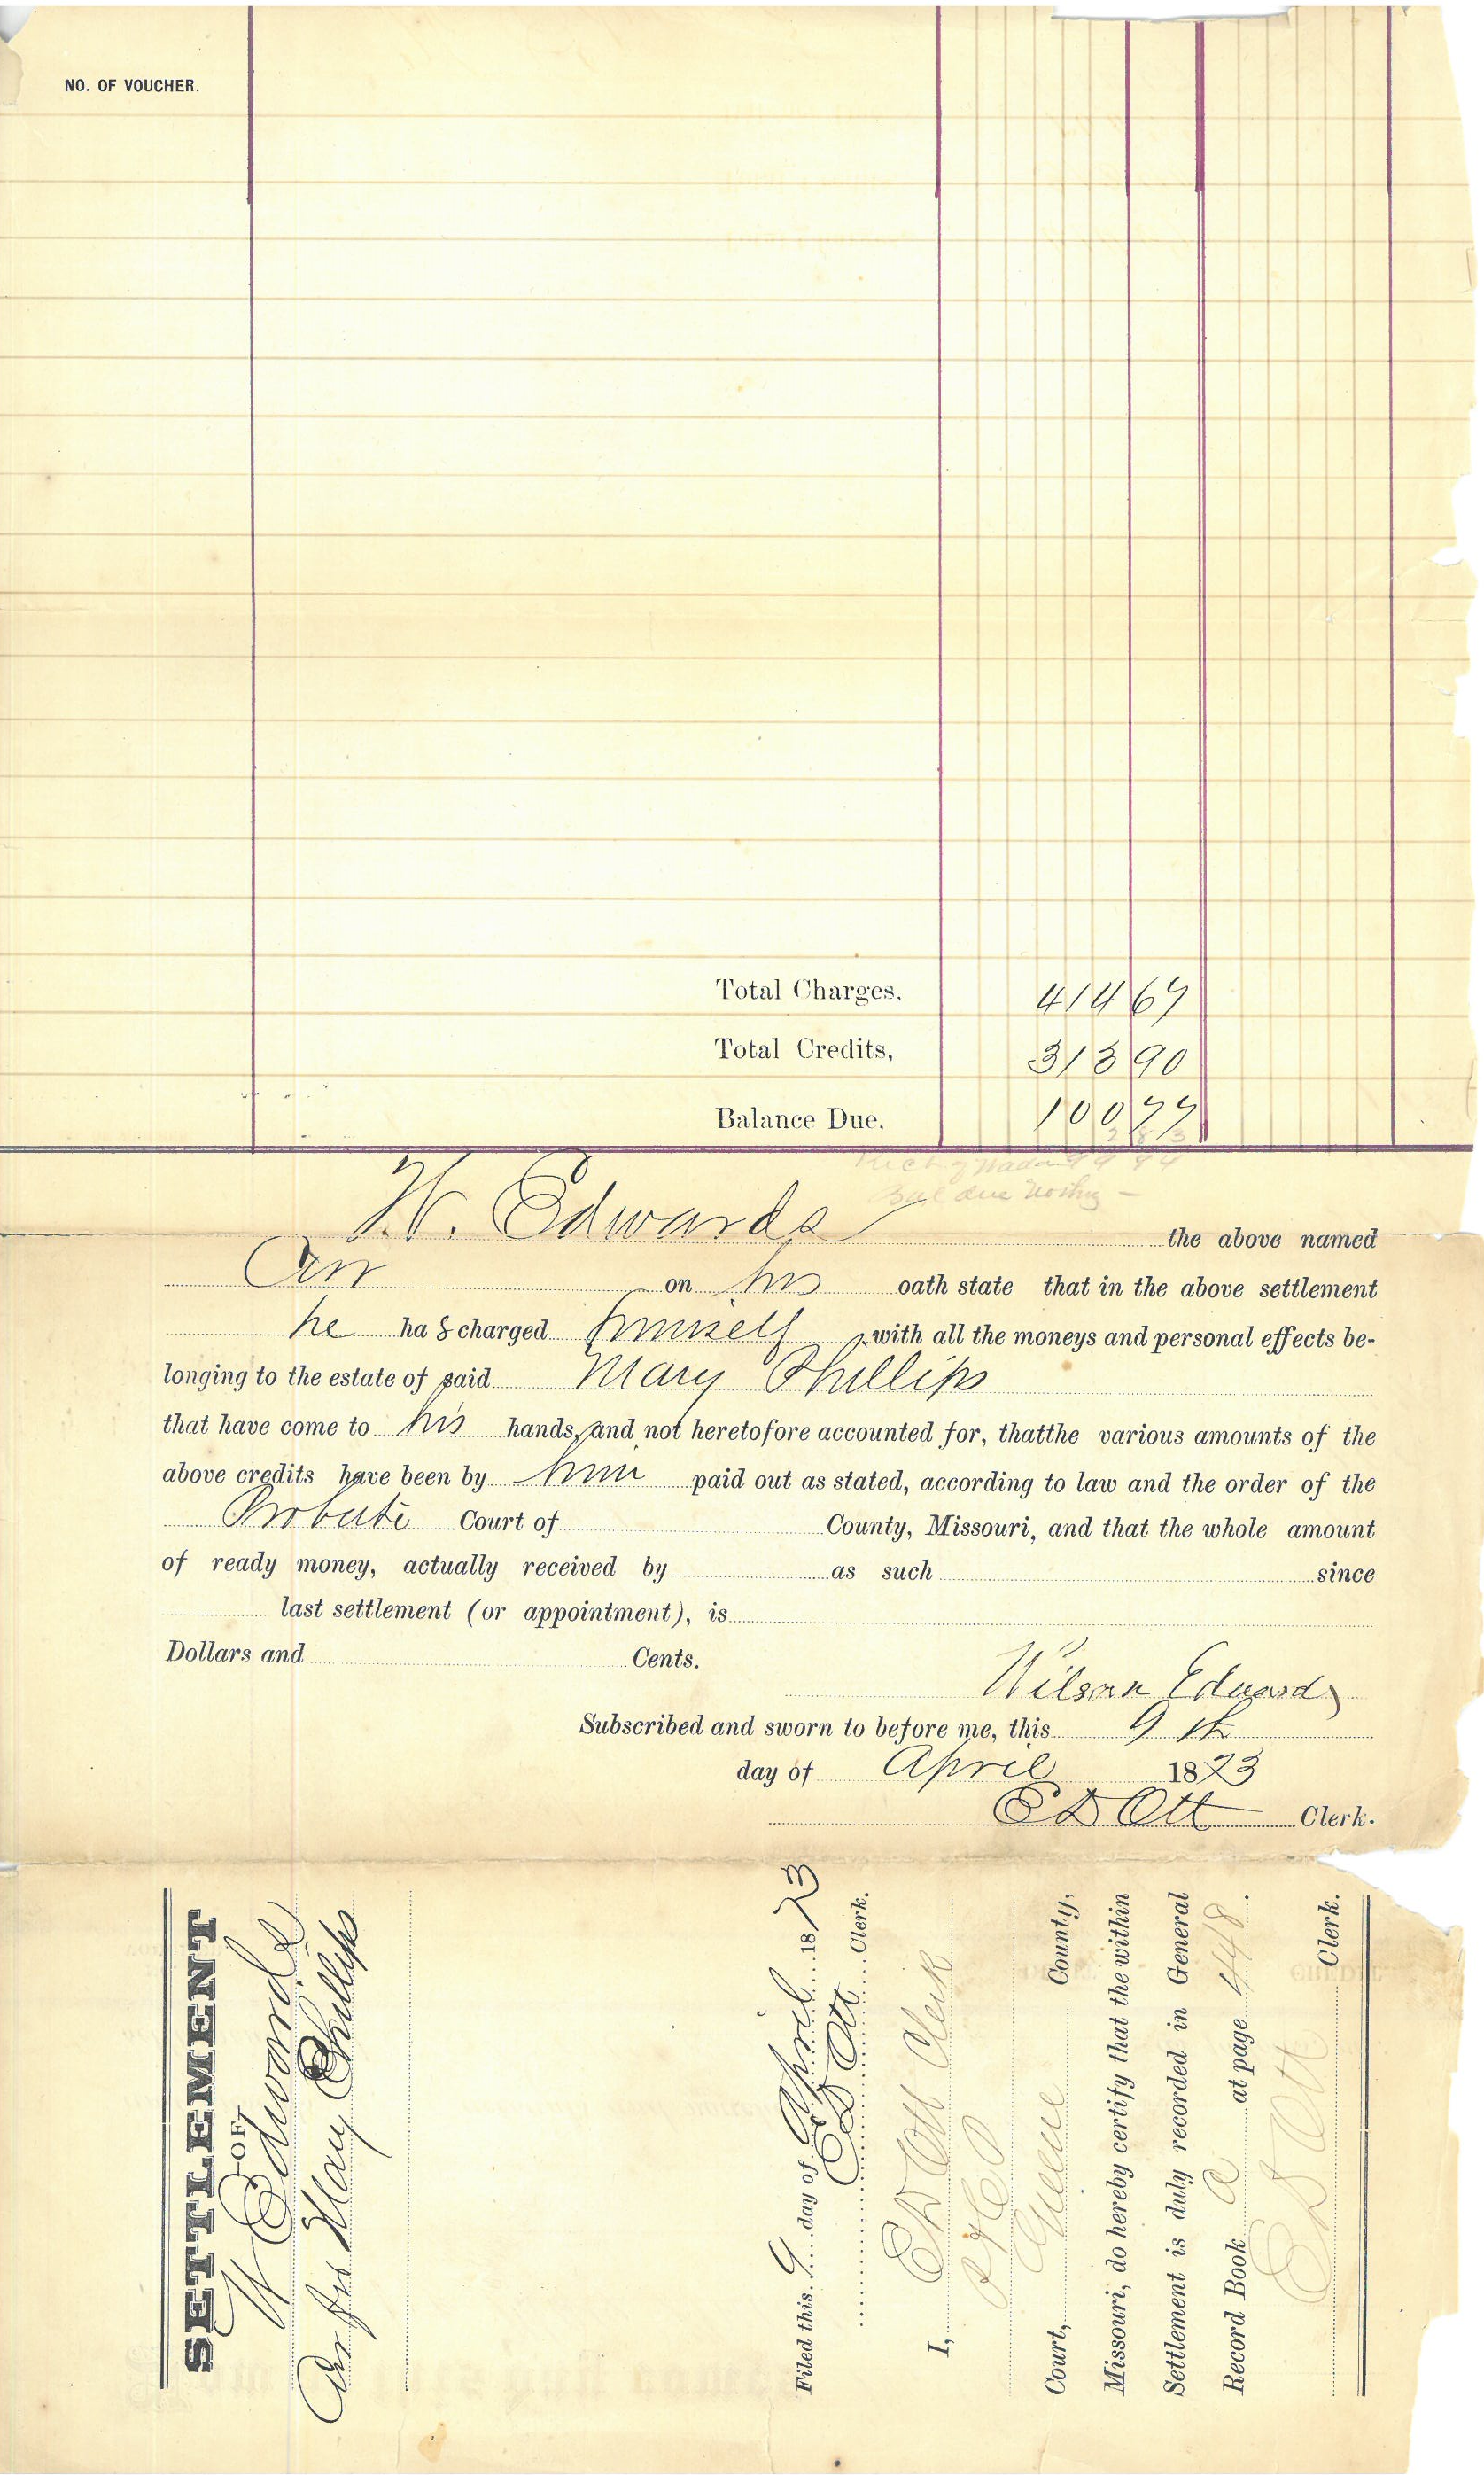 NO. OF VOUCHER.
Total Charges. 414 67
Total Credits, 313 90
Balance Due, 100 77
Bal due Nothing —
W. Edwards the above named
on his oath state that in the above settlement
he ha s charged himself with all the moneys and personal effects be-
longing to the estate of said Mary Phillips
that have come to his hands, and not heretofore accounted for, thatthe various amounts of the
above credits have been by him paid out as stated, according to law and the order of the
Probate Court of County, Missouri, and that the whole amount
of ready money, actually received by as such since
last settlement (or appointment), is
Dollars and Cents.
Wilson Edwards
Subscribed and sworn to before me, this 9th
day of April 1873
E D Ott Clerk.
SETTLEMENT
—OF—
W Edwards
for Mary Phillips
Filed this 9 day of April 1873
E D Ott Clerk.
I, E D Ott Clerk
Court, Greene County,
Missouri, do hereby certify that the within
Settlement is duly recorded in General
Record Book A at page 448.
E D Ott Clerk.